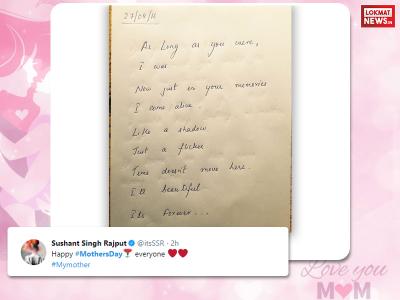 LOKMAT
NEWS.IN
27/08/11
As long as you were,
I was
Now just in your memories
I come alive.
Like a shadow
Just a flicker
Time doesn't move here.
It's beautiful
It's forever...
Sushant Singh Rajput @itsSSR · 2h
Happy #MothersDay everyone
#Mymother
Love you
MOM